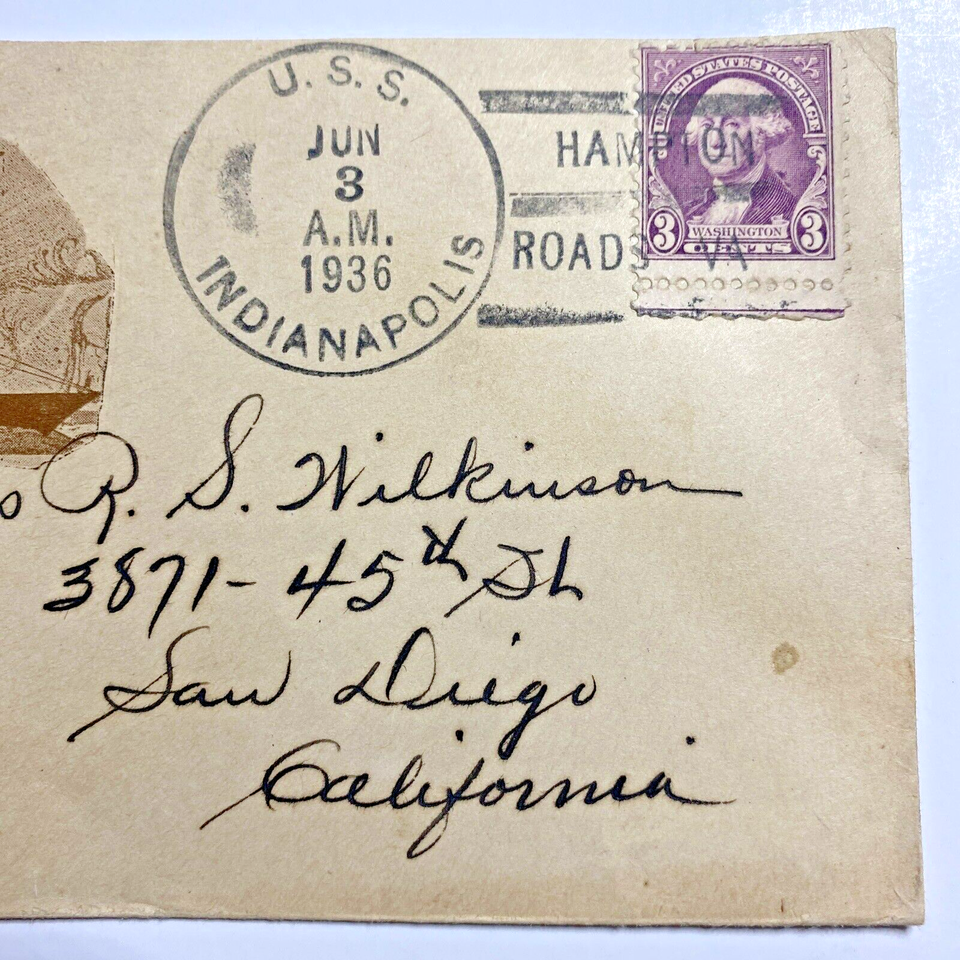 U. S. S.
JUN
3
A.M.
1936
INDIANAPOLIS
HAMPTON
ROADS VA
UNITED STATES POSTAGE
3 WASHINGTON 3
CENTS
R. S. Wilkinson
3871 - 45th St
San Diego
California